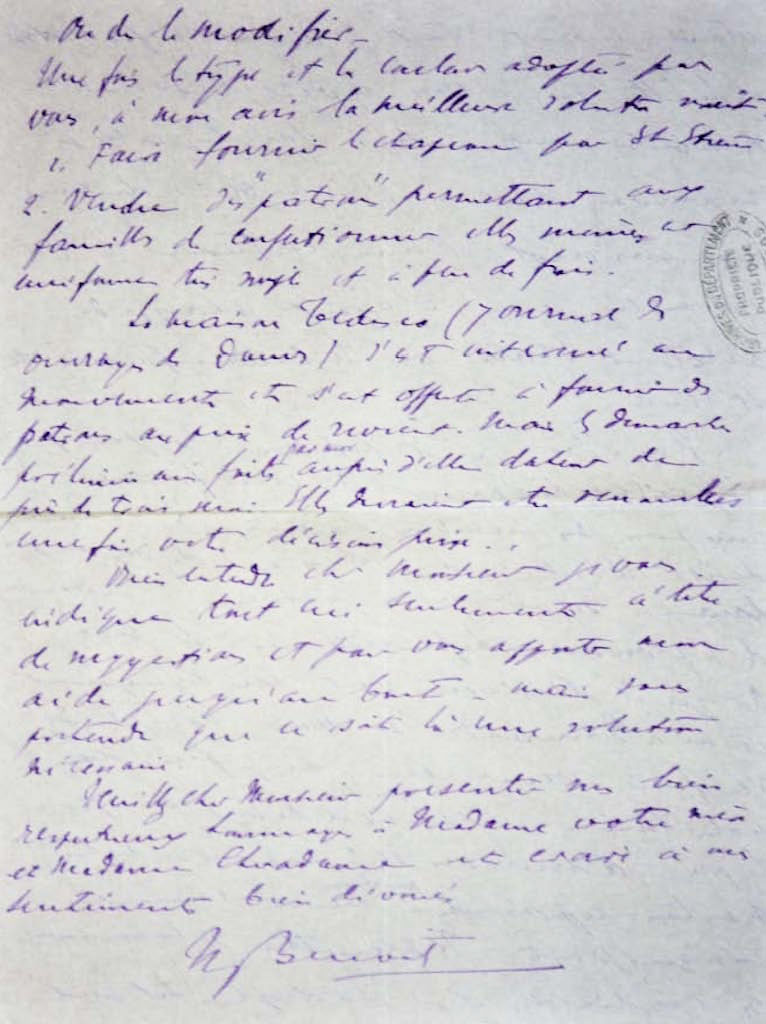 ou de le modifier -
Une fois le type et la couleur adoptés par
vous, à mon avis la meilleure solution serait
1. Faire fournir le chapeau par
2. Vendre des "patrons" permettant aux
familles de confectionner elles mêmes
uniformes très et à peu de frais.
La maison Tedesco (Journal des
ouvrages de Dames) s'est intéressé au
mouvement et s'est offerte à fournir des
patrons au prix de revient. Mais les démarches
préliminaires faites par moi auprès d'elle datent de
près de trois mois. Elles devraient être renouvelées
une fois votre décision prise..
Bien entendu cher Monsieur je vous
indique tout ceci seulement à titre
de suggestion et pour vous apporter mon
aide jusqu'au bout - mais sans
prétendre que ce soit là une solution
nécessaire
Veuillez cher Monsieur présenter mes bien
respectueux hommages à Madame votre mère
et Madame et croire à mes
sentiments bien dévoués
Benoit